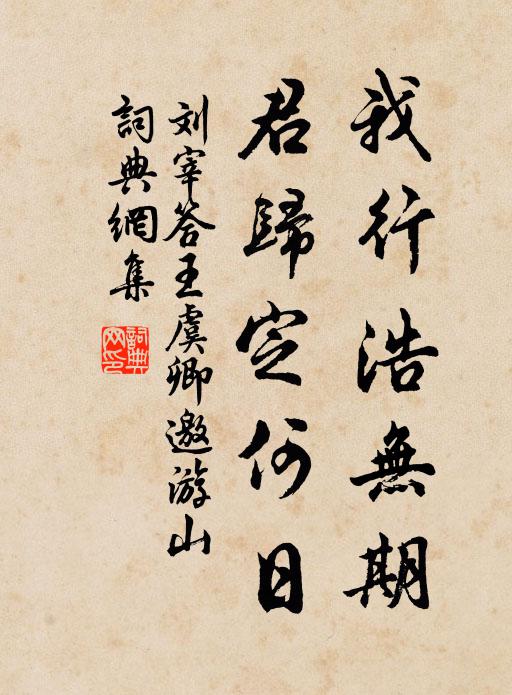 我行浩無期
君歸定何日
刘宰答王虞卿邀游山
詞典網集
詞典網印